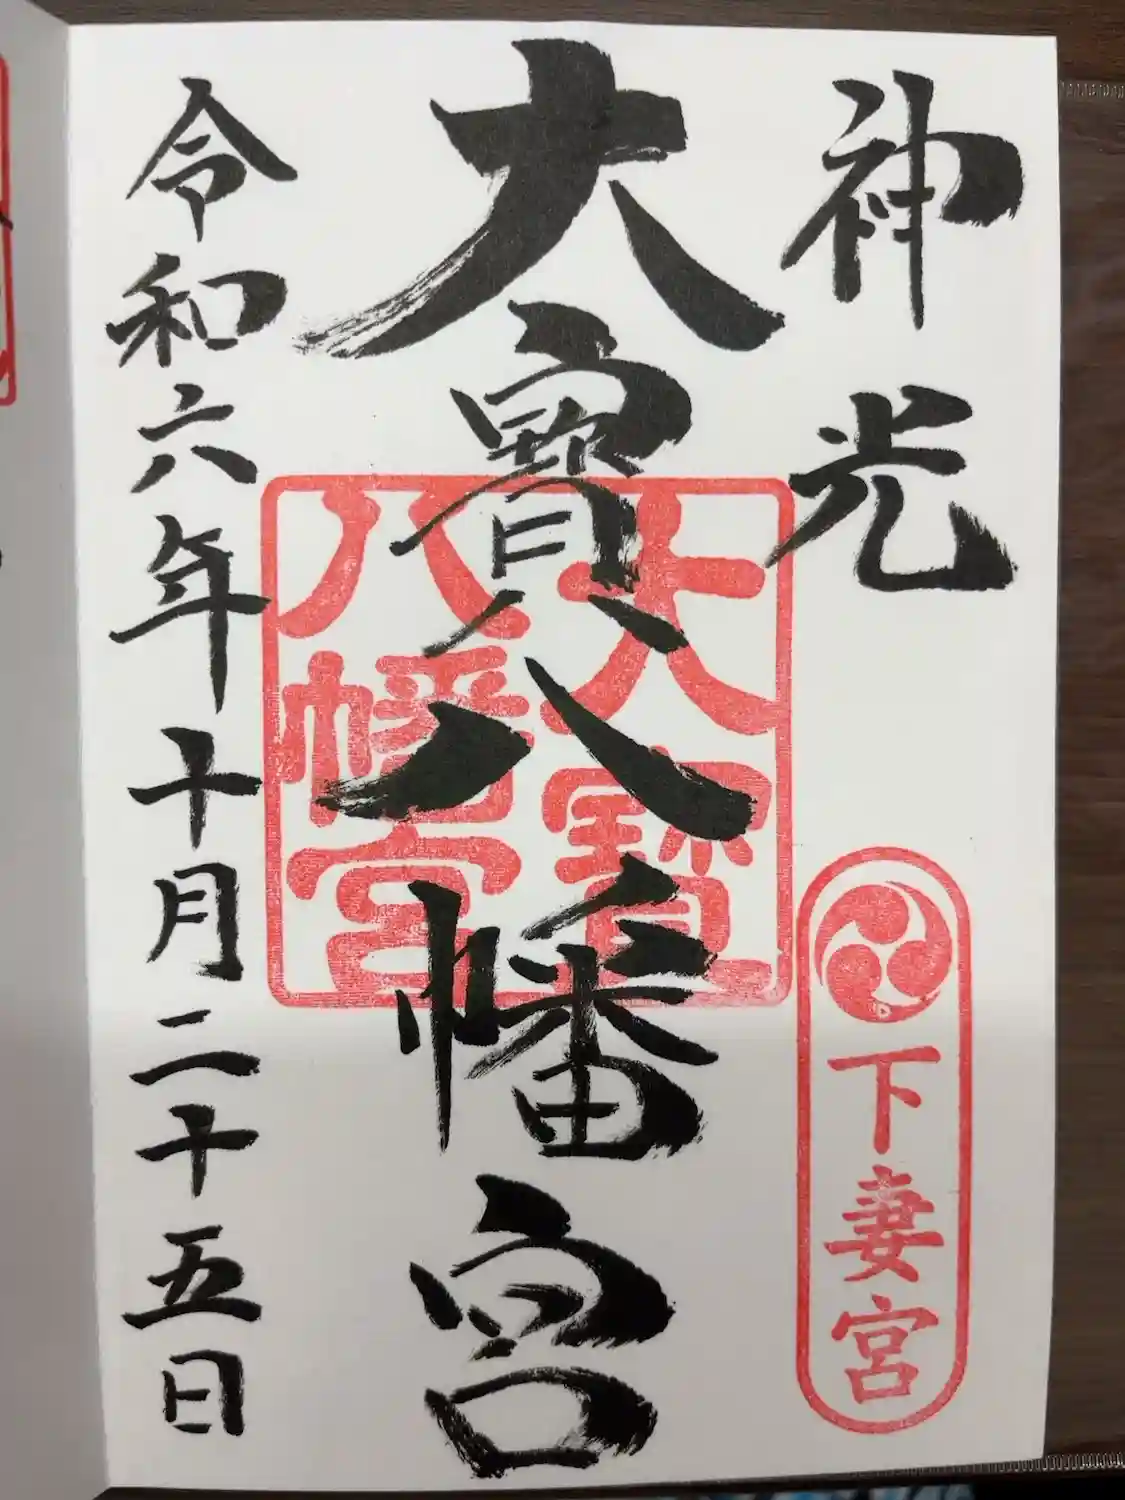 神光
下妻宮
大寳八幡宮
大寳
八幡宮
令和六年十月二十五日